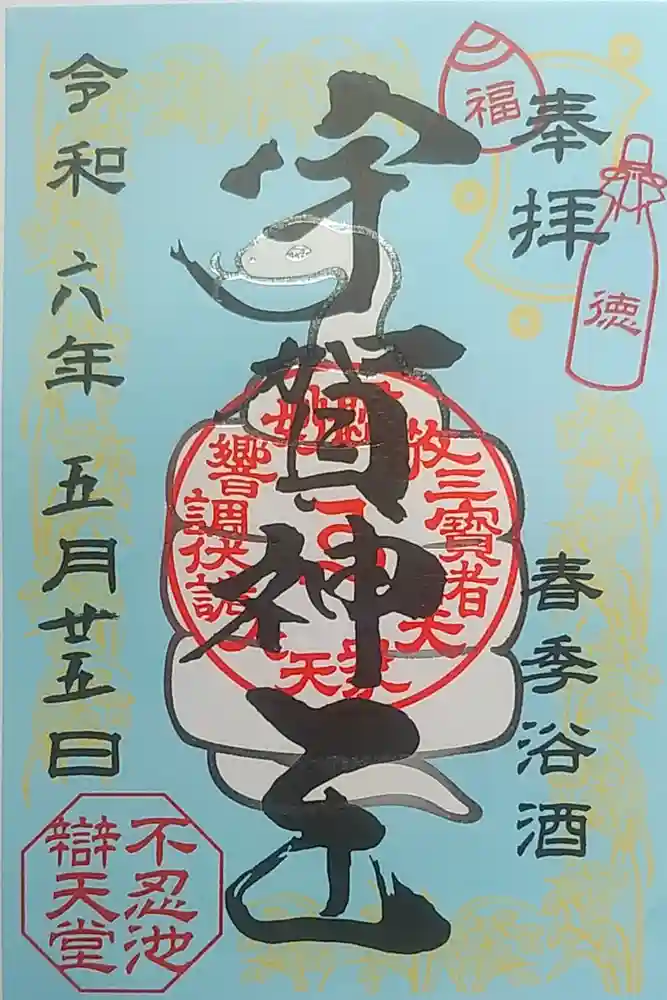 奉拝
福
徳
春季浴酒
宇賀神王
救三寶者
天衆天
響調伏諸
令和六年五月廿五日
不忍池
辯天堂